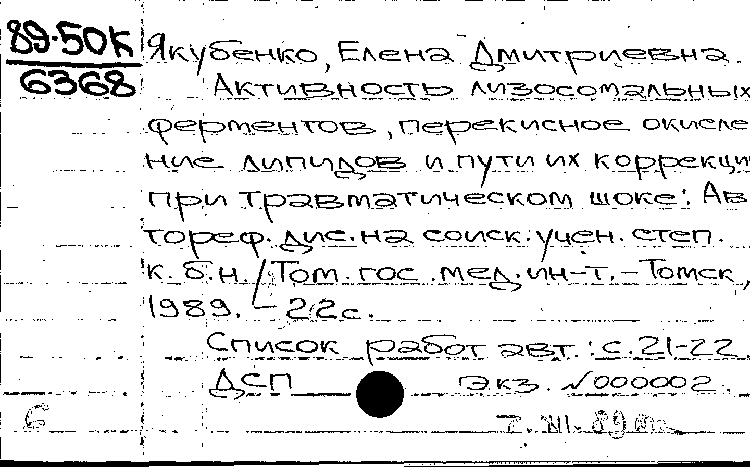 89-50К
6368
Якубенко, Елена Дмитриевна.
Активность лизосомальных
ферментов, перекисное окисле
ние липидов и пути их коррекци
при травматическом шоке: Ав
тореф. дис. на соиск. учен. степ.
к. б. н. / Том. гос. мед. ин-т. - Томск,
1989. - 22 с.
Список работ авт.: с. 21-22
ДСП Экз. №000002.
6